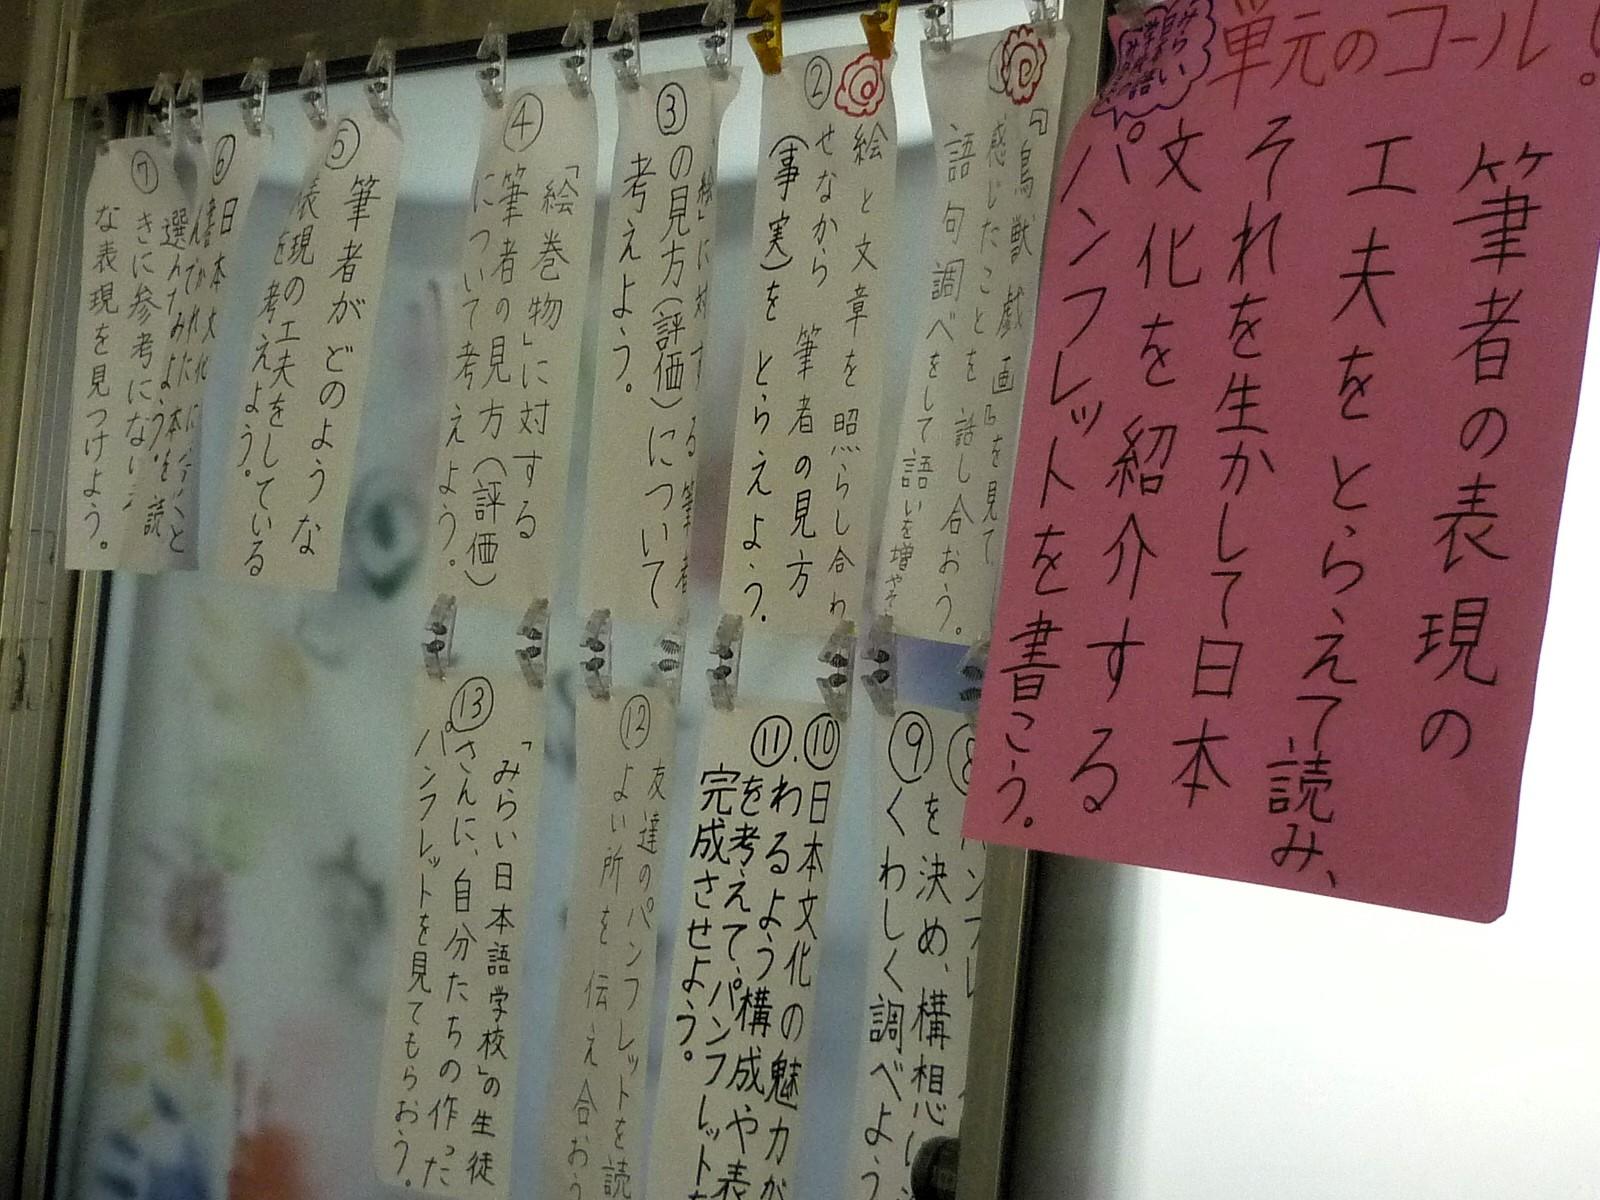 単元のゴール!
筆者の表現の
工夫をとらえて読み、
それを生かして日本
文化を紹介する
パンフレットを書こう。
『鳥獣戯画』を見て、
感じたことを話し合おう。
語句調べをして語いを増やそ
②
絵と文章を照らし合わ
せながら筆者の見方
(事実)をとらえよう。
③
絵」に対する筆者
の見方(評価)について
考えよう。
④
「絵巻物」に対する
筆者の見方(評価)
について考えよう。
⑤
筆者がどのような
表現の工夫をしている
を考えよう。
⑥
日本文化
選んでみよう。
⑦
きに参考にな
な表現を見つけよう。
⑧
を決め、構想
⑨
くわしく調べよう
⑩
日本文化の魅力が
⑪
わるよう構成や表
を考えて、パンフレットを
完成させよう。
⑫
友達のパンフレットを読
よい所を伝え合おう
⑬
「みらい日本語学校」の生徒
さんに、自分たちの作った
パンフレットを見てもらおう。